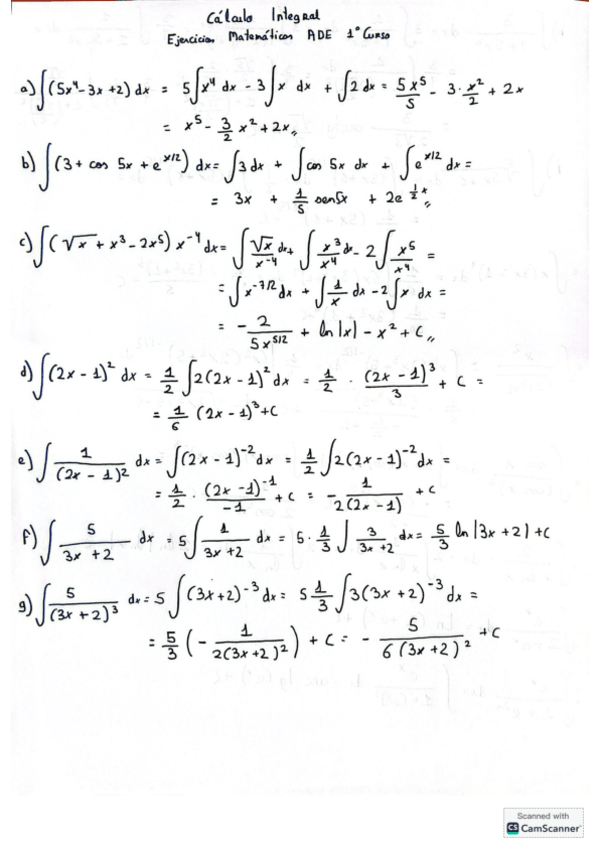 Cálculo Integral
Ejercicios Matemáticas ADE 1º Curso
a) ∫(5x⁴-3x+2) dx = 5∫x⁴ dx - 3∫x dx + ∫2 dx = 5x⁵/5 - 3·x²/2 + 2x
= x⁵ - 3/2 x² + 2x,,
b) ∫(3 + cos 5x + e^(x/2)) dx = ∫3 dx + ∫cos 5x dx + ∫e^(x/2) dx =
= 3x + 1/5 sen5x + 2e^(1/2 x),,
c) ∫(√x + x³ - 2x⁵) x⁻⁴ dx = ∫√x/x⁻⁴ dx + ∫x³/x⁴ dx - 2∫x⁵/x⁴ =
= ∫x^(-7/2) dx + ∫1/x dx - 2∫x dx =
= - 2/(5x^(5/2)) + ln|x| - x² + C,,
d) ∫(2x - 1)² dx = 1/2 ∫2(2x - 1)² dx = 1/2 · (2x - 1)³/3 + C =
= 1/6 (2x - 1)³ + C
e) ∫1/(2x - 1)² dx = ∫(2x - 1)⁻² dx = 1/2 ∫2(2x - 1)⁻² dx =
= 1/2 · (2x - 1)⁻¹/-1 + C = - 1/(2(2x - 1)) + C
f) ∫5/(3x + 2) dx = 5∫1/(3x + 2) dx = 5·1/3 ∫3/(3x + 2) dx = 5/3 ln|3x + 2| + C
g) ∫5/(3x + 2)³ dx = 5∫(3x + 2)⁻³ dx = 5 1/3 ∫3(3x + 2)⁻³ dx =
= 5/3 (- 1/(2(3x + 2)²)) + C = - 5/(6(3x + 2)²) + C
Scanned with
CS CamScanner